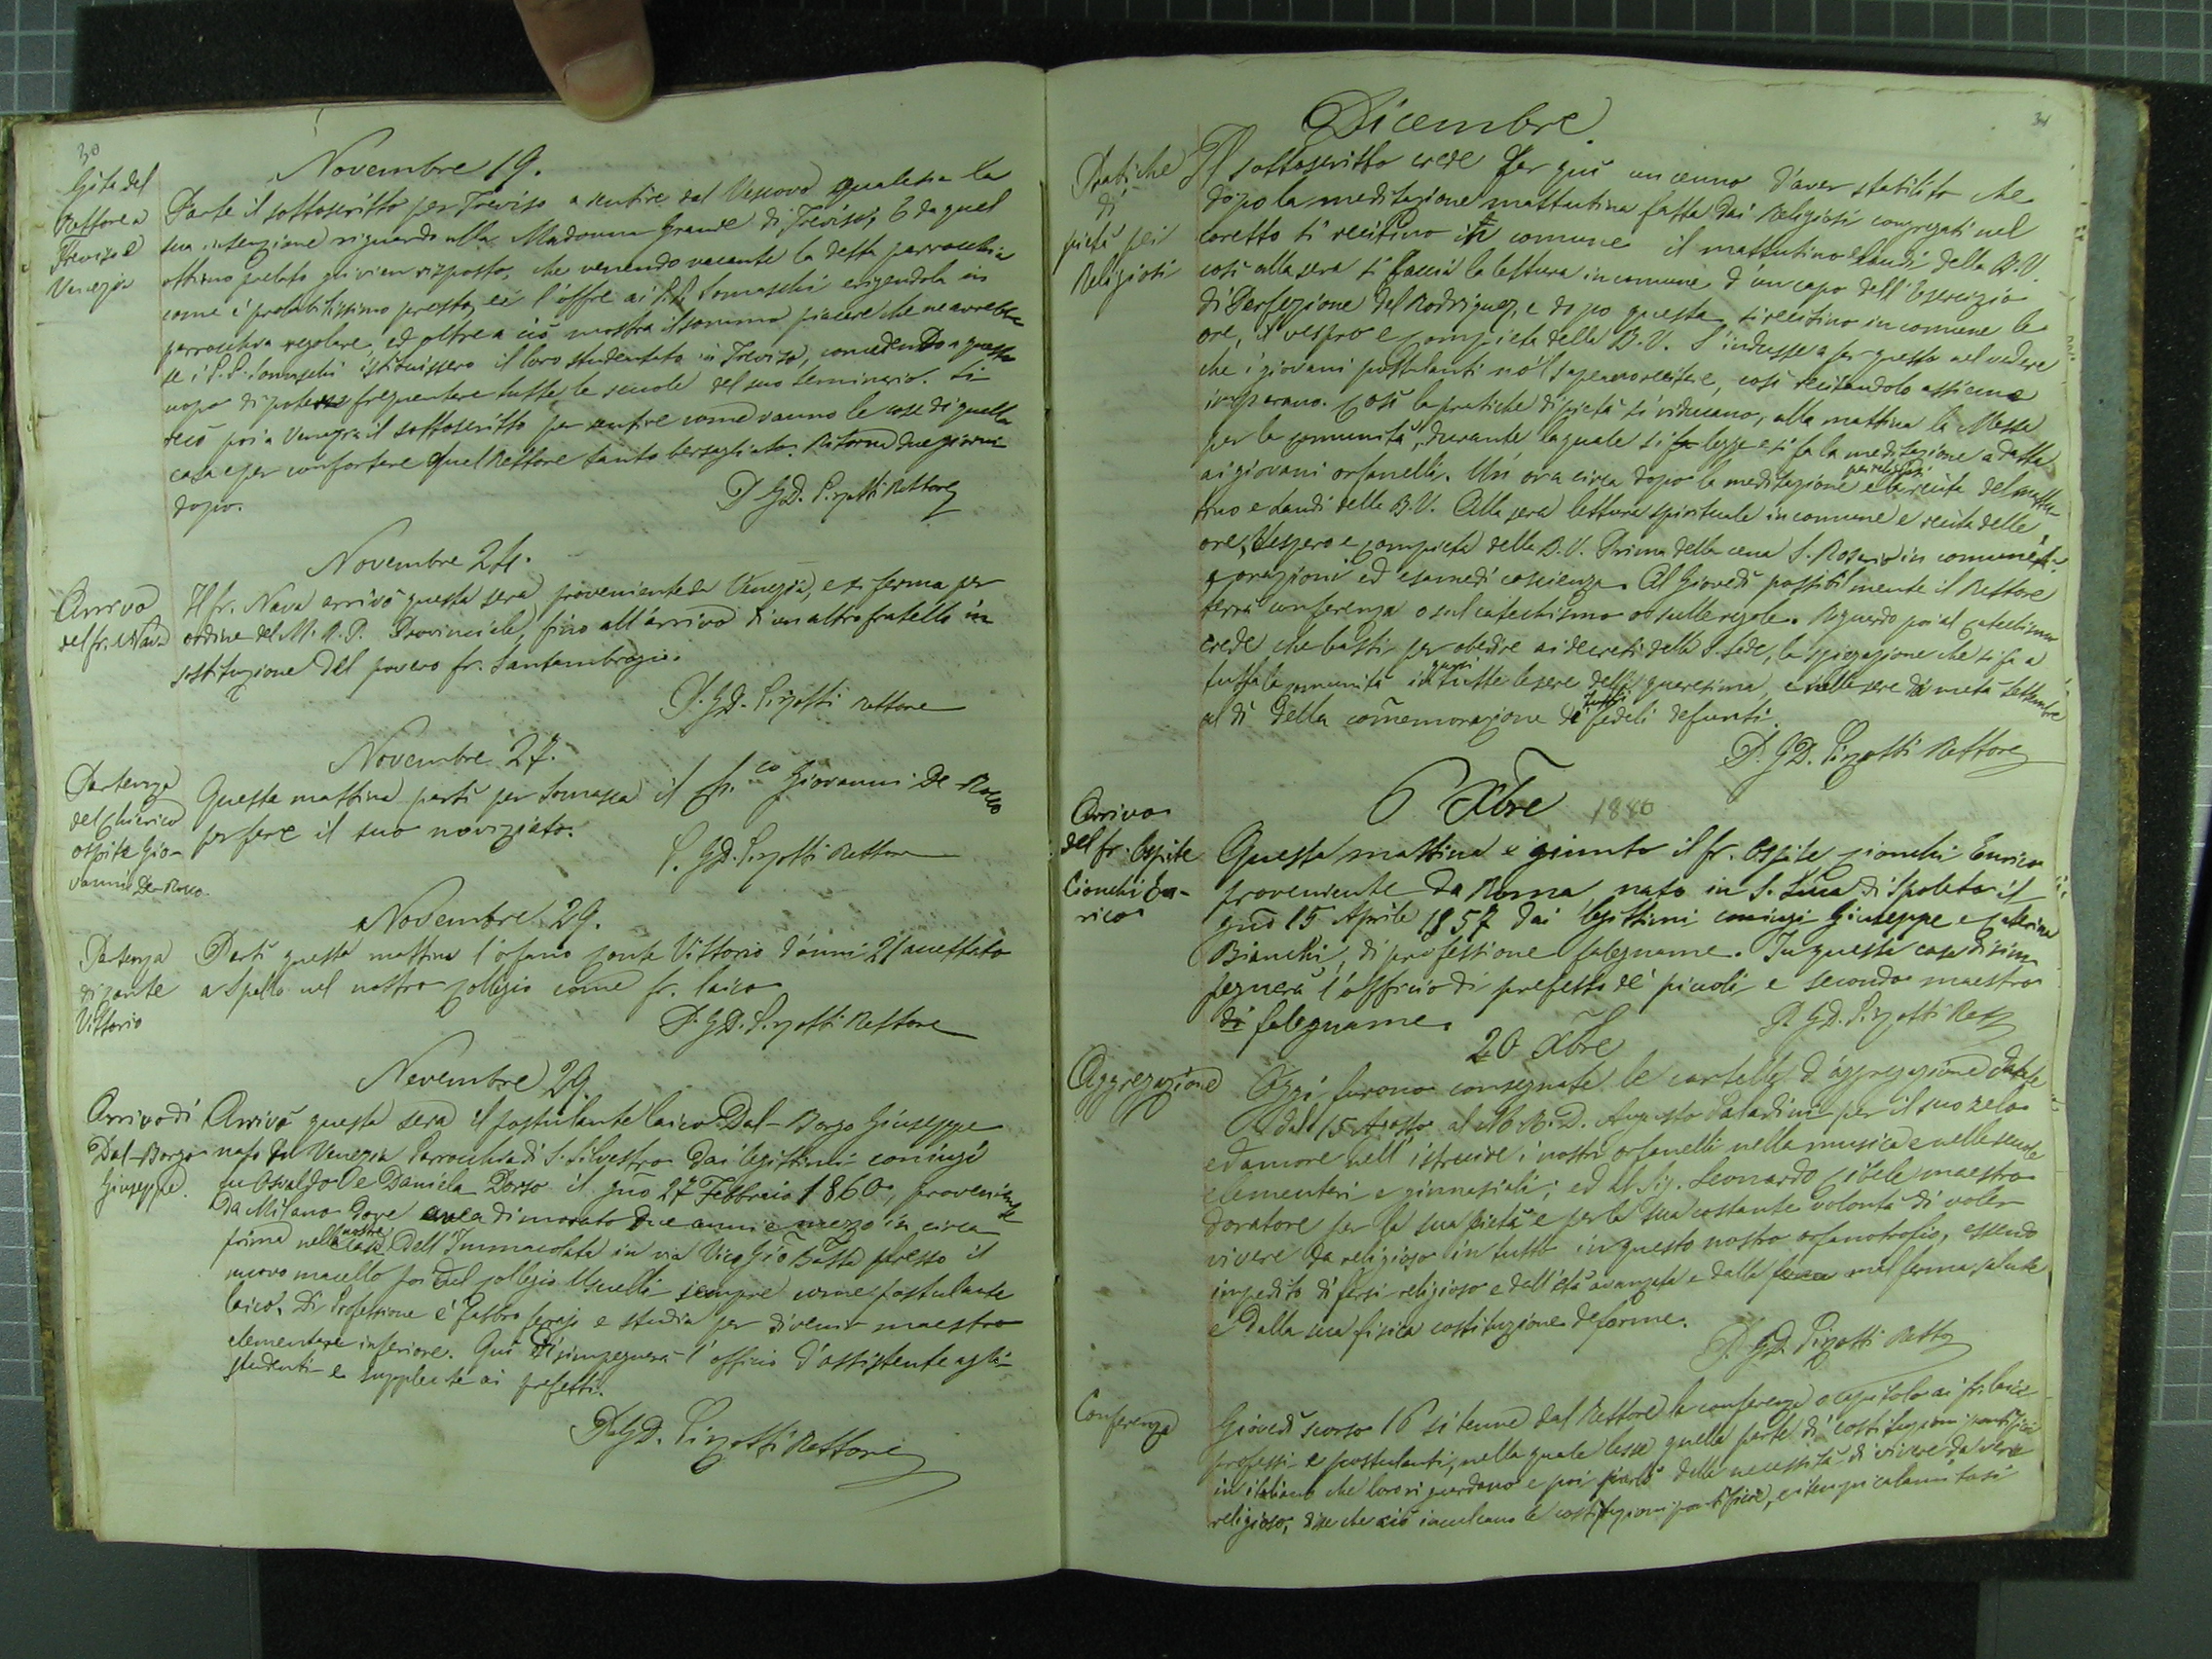 30
Gita del
Rettore a
Treviso e
Venezia
Novembre 19.
Parte il sottoscritto per Treviso a sentire dal Vescovo qual sia la
sua intenzione riguardo alla Madonna Grande di Treviso; E da quel
ottimo prelato gli vien risposto, che venendo vacante la detta parrocchia
come è probabilissimo presto, ei l'offre ai P.P. Somaschi erigendola in
parrocchia regolare, ed oltre a ciò mostra il sommo piacere che ne avrebbe
se i P.P. Somaschi istituissero il loro studentato in Treviso, concedendo a questo
uopo di poter frequentare tutte le scuole del suo Seminario. Si
recò poi a Venezia il sottoscritto per sentire come vanno le cose di quella
casa e per confortare quel Rettore tanto bersagliato. Ritornò due giorni
dopo.
D. GD. Pizzotti Rettore
Novembre 24.
Arrivo
del fr. Nava
Il fr. Nava arrivò questa sera proveniente da Venezia, e si ferma per
ordine del M. R. P. Provinciale, fino all'arrivo di un altro fratello in
sostituzione del povero fr. Santambrogio.
P. GD. Pizzotti rettore
Novembre 27.
Partenza
del chierico
ospite Gio-
vanni De-Rocco.
Questa mattina partì per Somasca il Ch.co Giovanni De-Rocco
per fare il suo noviziato.
P. GD. Pizzotti Rettore
Novembre 29.
Partenza
di Conte
Vittorio
Partì questa mattina l'orfano Conte Vittorio d'anni 21 accettato
a Spello nel nostro Collegio come fr. laico
P. GD. Pizzotti Rettore
Novembre 29.
Arrivo di
Dal-Borgo
Giuseppe.
Arrivò questa sera il postulante laico Dal-Borgo Giuseppe
nato in Venezia Parrocchia di S. Silvestro dai legittimi coniugi
fu Osvaldo e Daniela Dorso il gno 27 Febbraio 1860, proveniente
da Milano dove avea dimorato due anni e mezzo in circa
prima nella nostra casa dell'Immacolata in via Vico Gio Batta presso il
nuovo macello poi nel collegio Usuelli sempre come postulante
laico. Di Professione è fabbro ferrajo e studia per divenir maestro
elementare inferiore. Qui disimpegnerà l'officio d'assistente agli
studenti e supplente ai prefetti.
P. GD. Pizzotti Rettore
31
Dicembre
Pratiche
di
pietà pei
Religiosi
Il sottoscritto crede far qui un cenno d'aver stabilito che
dopo la meditazione mattutina fatta dai Religiosi congregati nel
coretto si recitino in comune il mattutino e laudi della B.V.
così alla sera si faccia la lettura in comune d'un capo dell'Esercizio
di Perfezione del Rodriguez, e dopo questa si recitino in comune le
ore, il vespro e compieta della B.V. S'indusse a far questo nel vedere
che i giovani postulanti nol sapeano recitare, così recitandolo assieme
imparano. Così le pratiche di pietà si riducano, alla mattina la Messa
per la comunità, durante la quale si legge e si fa la meditazione adatta
ai giovani orfanelli. Un ora circa dopo la meditazione pei religiosi e la recita del mattu-
tino e Laudi della B.V. Alla sera lettura spirituale in comune e recita delle
ore, Vespero e compieta della B.V. Prima della cena S. Rosario in comune
orazioni ed esame di coscienza. Al Giovedì possibilmente il Rettore
terrà conferenza o sul catechismo o sulle regole. Riguardo poi al catechismo
crede che basti per obedire ai decreti della S. Sede, la spiegazione che si fa a
tutta la comunità in quasi tutte le sere della quaresima, e nelle sere da metà settembre
al dì della com̃emorazione di tutti i fedeli defunti.
P. GD. Pizzotti Rettore
6 Xbre 1880
Arrivo
del fr. Ospite
Cionchi En-
rico
Questa mattina è giunto il fr. Ospite Cionchi Enrico
proveniente da Roma nato in S. Luca di Spoleto il
gno 15 Aprile 1857 dai legittimi coniugi Giuseppe e Caterina
Bianchi, di professione falegname. In questa casa disim
pegnerà l'officio di prefetto de' piccoli e secondo maestro
di falegname.
P. GD. Pizzotti Rett
20 Xbre
Aggregazione
Oggi furono consegnate le cartelle d'aggregazione datate
dal 15 Agosto al M. R. D. Augusto Paladini per il suo zelo
ed amore nell'istruire i nostri orfanelli nella musica e nelle scuole
elementari e ginnasiali; ed al Sig. Leonardo Cibele maestro
doratore per la sua pietà e per la sua costante volontà di voler
vivere da religioso in tutto in questo nostro orfanotrofio, essendo
impedito di farsi religioso e dall'età avanzata e dalla mal ferma salute
e dalla sua fisica costituzione deforme.
P. GD. Pizzotti Rett
Conferenza
Giovedì scorso 16 si tenne dal Rettore la conferenza o capitolo ai fr. laici
professi e postulanti, nella quale lesse quella parte di costituzioni pontificie
in italiano che loro riguardano e poi parlò della necessità di vivere da vero
religioso, disse che ciò inculcano le costituzioni pontificie, ei tempi calamitosi